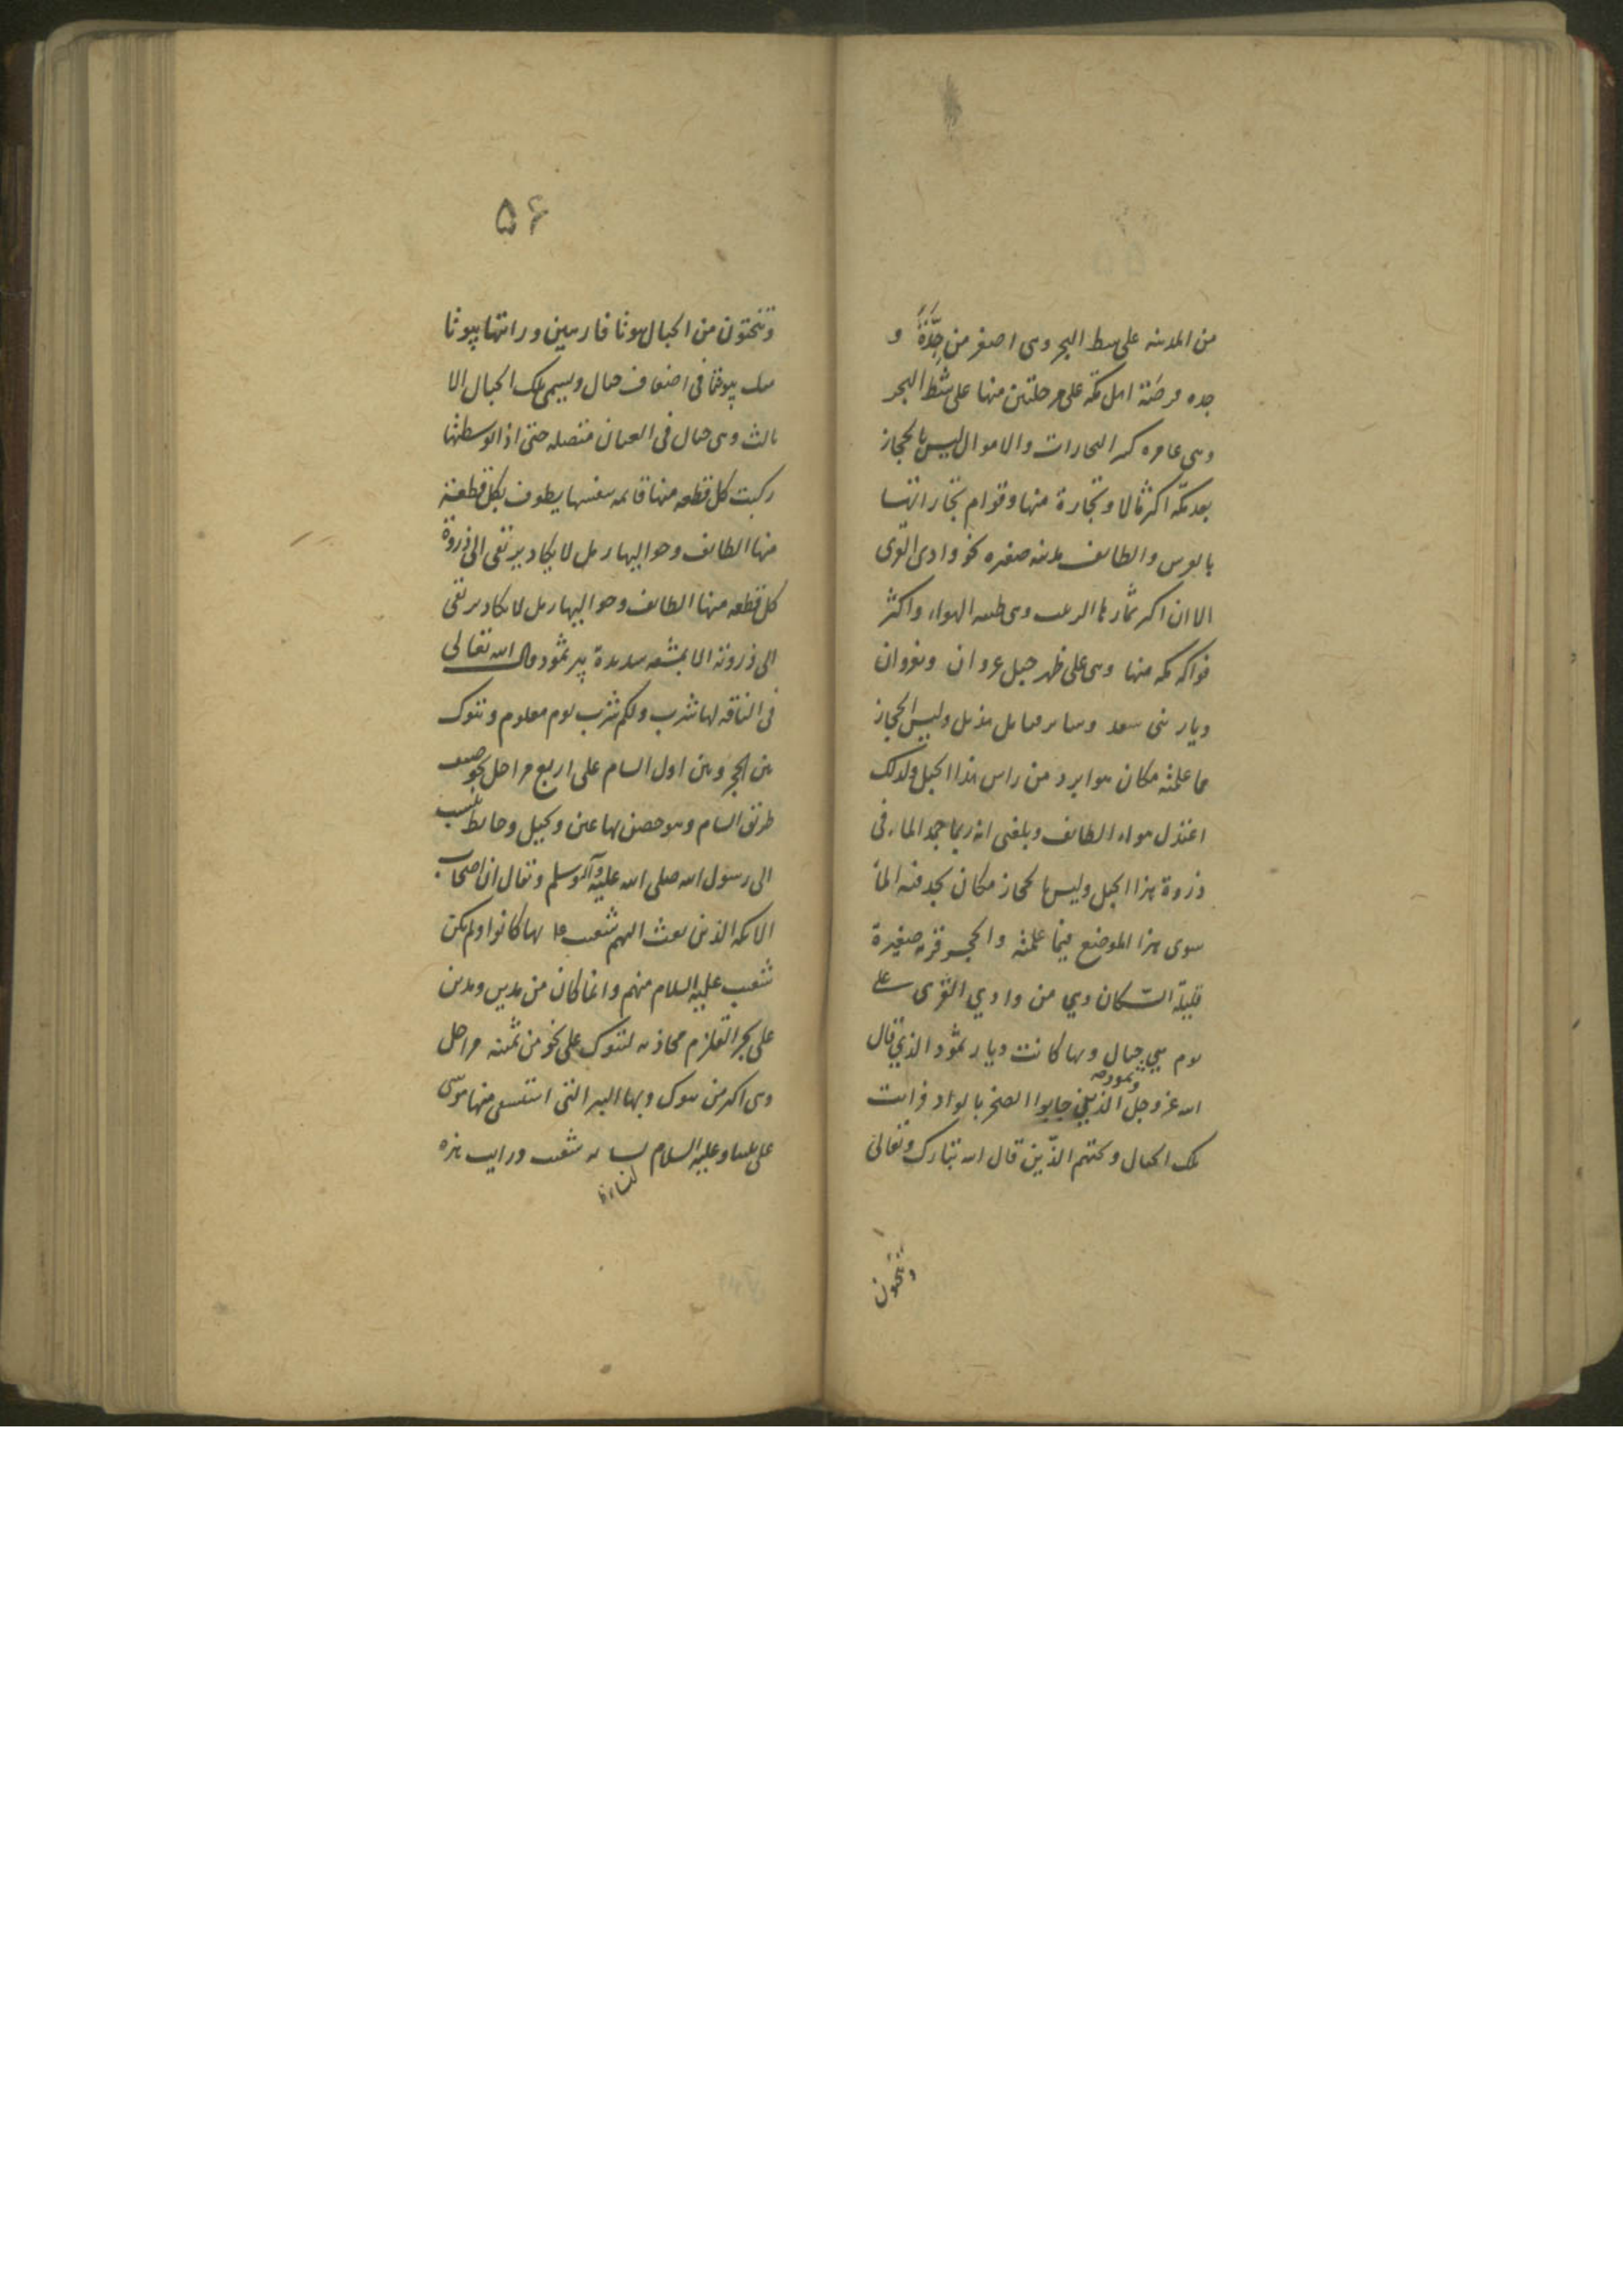 من المدينه على شط البحر وهى اصغر من جدّة و
جده فرضة اهل مكه على مرحلتين منها على شط البحر
وهى عامره كثير التجارات والاموال ليس بالحجاز
بعد مكّه اكثر مالا وتجارة منها وقوام تجاراتها
بالفرس والطائف مدينه صغيره نحو وادى القرى
الا ان اكثر ثمارها الزبيب وهى طيبه الهواء واكثر
فواكه مكه منها وهى على ظهر جبل غزوان وبغزوان
ديار بنى سعد وساير قبايل هذيل وليس بالحجاز
مما علمته مكان هو ابرد من راس هذا الجبل ولذلك
اعتدل هواء الطائف وبلغنى انه ربما جمد الماء فى
ذروة هذا الجبل وليس بالحجاز مكان يجمد فيه الماء
سوى هذا الموضع فيما علمته والحجر قريه صغيرة
قليلة السّكان وهي من وادي القرى على
يوم بين جبال وبها كانت ديار ثمود الذين قال
الله عز وجلّ وثمود الذين جابوا الصخر بالواد ورايت
تلك الجبال ونحتهم الذّين قال الله تبارك وتعالى
وتنحتون
۵۶
وتنحتون من الجبال بيوتا فارهين ورايتها بيوتا
مثل بيوتنا فى اضعاف جبال ويسمى تلك الجبال الا
ثالث وهى جبال فى العيان متصله حتى اذا توسطتها
ركبت كل قطعه منها قائمه بنفسها يطوف بكل قطعة
منها الطائف وحواليها رمل لا يكاد يرتقى الى ذروة
كل قطعه منها الطائف وحواليها رمل لا يكاد يرتقى
الى ذروته الا بمشقه شديدة بير ثمود قال الله تعالى
فى الناقه لها شرب ولكم شرب يوم معلوم وتبوك
بين الحجر وبين اول الشام على اربع مراحل نحو نصف
طريق الشام وهو حصن بها عين ونخيل وحائط ينسب
الى رسول الله صلى الله عليه وآله وسلم ويقال ان اصحاب
الايكه الذين بعث اليهم شعيب بها كانوا ولم يكن
شعيب عليه السلام منهم وانما كان من مدين ومدين
على بحر القلزم محاذيه لتبوك على نحو من ستة مراحل
وهى اكبر من تبوك وبها البير التى استسقى منها موسى
على نبينا وعليه السلام لسائمه شعيب ورايت هذه